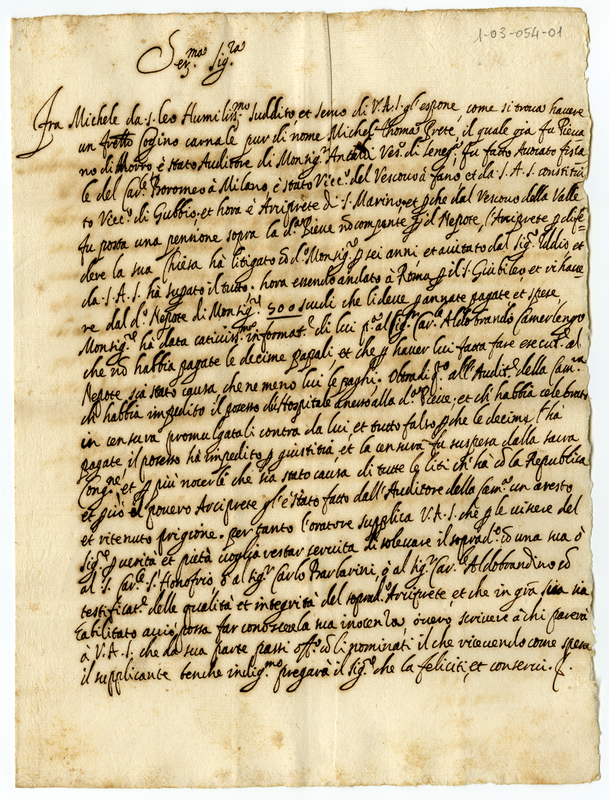 1-03-054-01
Ser.ma Sig.ra
Fra Michele da S. Leo Humiliss.mo Suddito et servo di V.A.S. gl'espone come si trova havere
un Cogino carnale pur di nome Michel Thoma Prete, il quale già fu Pieva
no di è stato Auditore di Monsig.r Ves.o di Seneg.a, fu fatto Avocato fisca
le del Car.le Boromeo à Milano, è stato Vic.o del Vescovo à fano et da S.A.S. constitui
to Vic.o di Gubbio, et hora è Arciprete di S. Marino, et che dal Vescovo dalla Valle
fu posta una pensione sopra la d.a Pieve d'il Nepote, l'Arciprete p dife=
dere la sua Chiesa hà litigato cõ d.o Monsig.r p sei anni et aiutato dal Sig.r Iddio et
da S.A.S. hà il tutto. hora essendo andato à Roma p il S. Giubileo et vi have
re dal d.o Nepote di Monsig.r 500 scudi che li deve p annate pagate et spese,
Monsig.r hà data informat.e di lui al Sig.r Car.le Aldobrandino Camerlengo
che nõ habbia pagate le decime papali, et che p haver lui fatta fare al
Nepote, sia stato causa che ne meno lui le paghi. all'Audit.e della Cam.ra
ch'habbia impedito il possesso Hospitale anesso alla d.a Pieve, et ch'habbia celebrato
in censura promulgatali contra da lui et tutto falso p che le decime l'hà
pagate il possesso hà impedito p giustitia et la censura fu suspesa dalla sacra
Cong.ne, et p più nocerli che sia stato causa di tutte le liti ch'hà cõ la Republica
et p ciò el povero Arciprete gl'è stato fatto dall'Auditore della Cam.ra un aresto
et ritenuto prigione. per tanto l'oratore supplica V.A.S. che p le viscere del
Sig.r p verità et pietà voglia restar servita di solevare il soprad.o cõ una sua ò
al S. Car.le S. Honofrio ò al Sig.r Carlo Barbarini, ò al Sig.r Car.le Aldobrandino cõ
testificat.e delle qualità et integrità del soprad.o Arciprete, et che sia
habilitato acciò possa far conoscere la sua inocenza, overo scrivere à chi parerà
à V.A.S. che da sua parte passi off.o cõ li nominati il che ricevendo come spera
il supplicante benche indig.mo pregarà il Sig.re che la feliciti, et conservi.